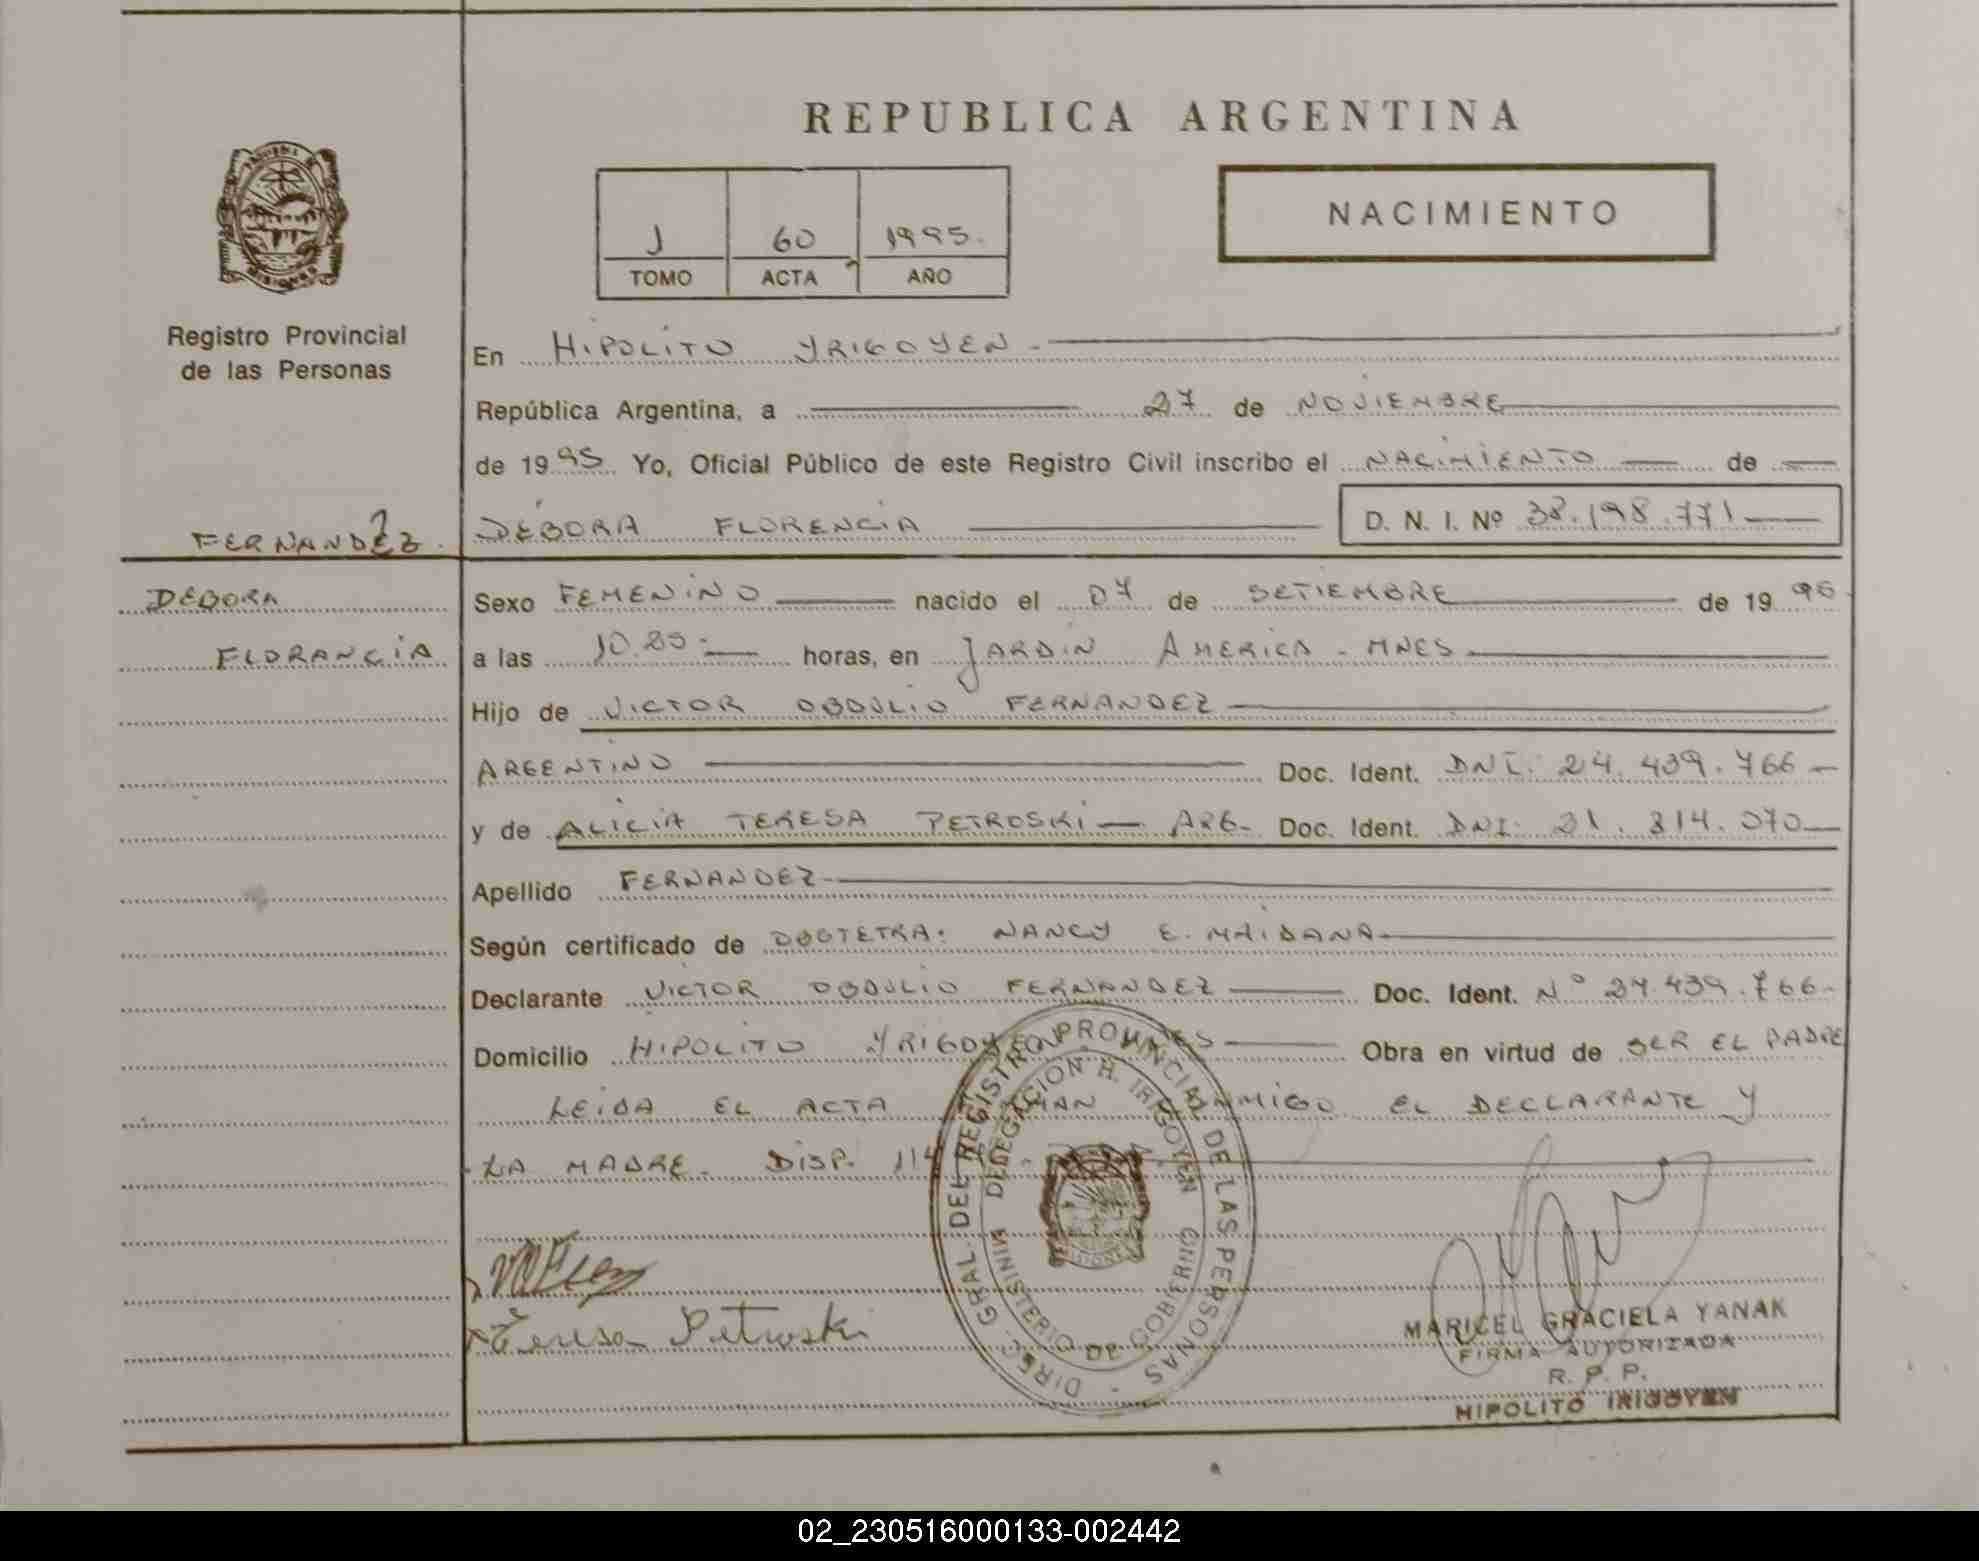 REPUBLICA ARGENTINA
J 60 1995.
TOMO ACTA AÑO
NACIMIENTO
MISIONES
Registro Provincial
de las Personas
En HIPOLITO YRIGOYEN -
República Argentina, a 27 de NOVIEMBRE
de 1995 Yo, Oficial Público de este Registro Civil inscribo el NACIMIENTO de
FERNANDEZ.
DÉBORA FLORENCIA D. N. I. Nº 38.198.771
DEBORA
FLORANCIA
Sexo FEMENINO nacido el 07 de SETIEMBRE de 1995
a las 10.25 horas, en JARDIN AMERICA - MNES
Hijo de VICTOR OBDULIO FERNANDEZ
ARGENTINO Doc. Ident. DNI. 24.439.766
y de ALICIA TERESA PETROSKI ARG- Doc. Ident. DNI. 21.814.070
Apellido FERNANDEZ
Según certificado de OBSTETRA: NANCY E. MAIDANA
Declarante VICTOR OBDULIO FERNANDEZ Doc. Ident. Nº 24.439.766-
Domicilio HIPOLITO YRIGOYEN Obra en virtud de SER EL PADRE
LEIDA EL ACTA EL DECLARANTE Y
LA MADRE. DISP. 114
DIREC. GRAL. DEL REGISTRO PROVINCIAL DE LAS PERSONAS
DELEGACION H. IRIGOYEN
MINISTERIO DE GOBIERNO
Teresa Petroski
MARICEL GRACIELA YANAK
FIRMA AUTORIZADA
R. P. P.
HIPOLITO IRIGOYEN
02_230516000133-002442